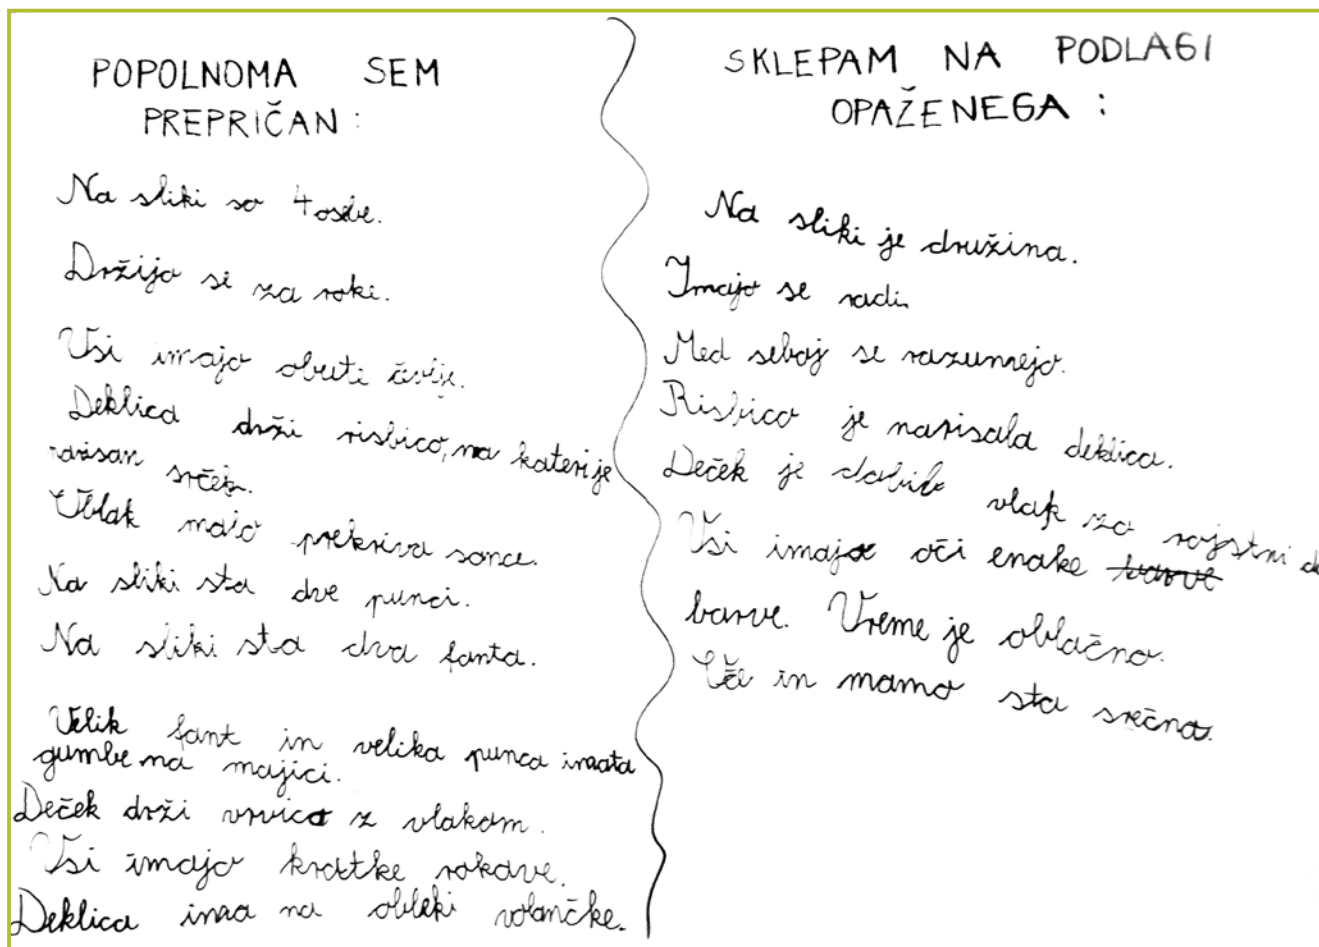 POPOLNOMA SEM
PREPRIČAN:
Na sliki so 4 osebe.
Držijo se za roki.
Vsi imajo obuti čevlje.
Deklica drži risbico, na kateri je
narisan srček.
Oblak malo prekriva sonce.
Na sliki sta dve punci.
Na sliki sta dva fanta.
Velik fant in velika punca imata
gumbe na majici.
Deček drži vrvico z vlakom.
Vsi imajo kratke rokave.
Deklica ima na obleki volančke.
SKLEPAM NA PODLAGI
OPAŽENEGA:
Na sliki je družina.
Imajo se radi.
Med seboj se razumejo.
Risbico je narisala deklica.
Deček je dobil vlak za rojstni d
Vsi imajo oči enake barve
barve. Vreme je oblačno.
Oče in mamo sta srečna.